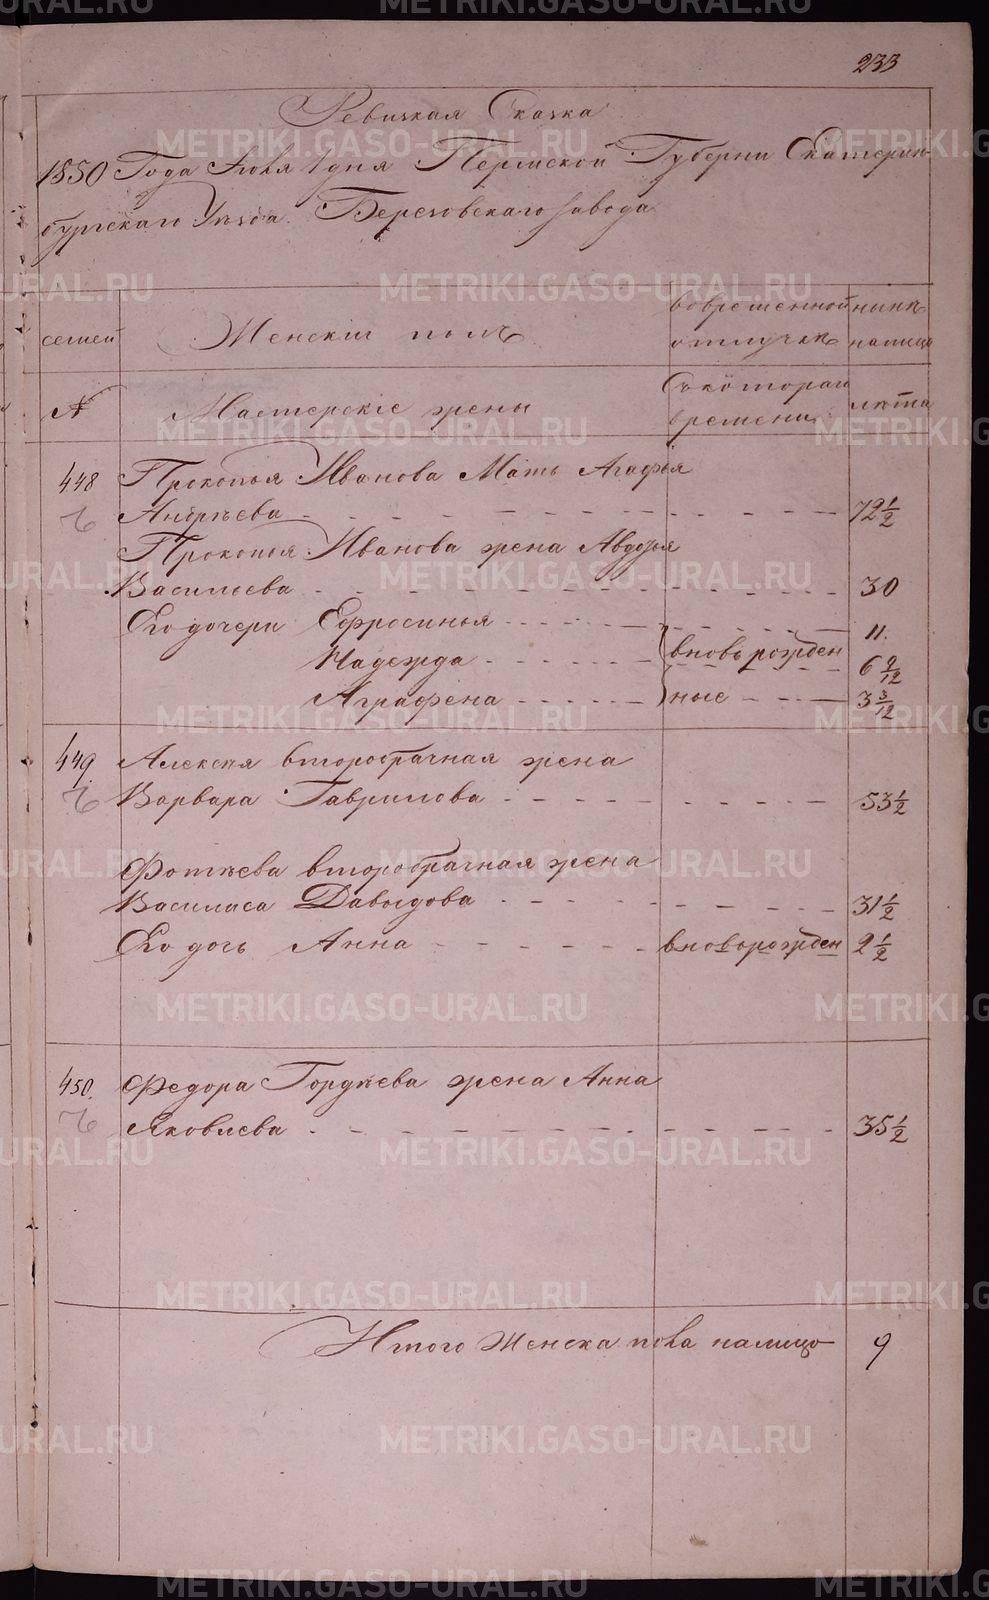 233
Ревизкая Сказка
1850 Года Июня 1 дня Пермской Губерни Екатерин-
бургскаго Уезда Березовскаго завода
семей Женскiй полъ вовременной ныне
отлучке налицо
№ Мастерскiе жены Съкоторая лета
времени
448 Прокопья Иванова Мать Агафья
Андреева 72 1/2
Прокопья Иванова жена Авдотья
Васильева 30
Его дочери Ефросинья 11.
Надежда вновь рожден 6 9/12
Аграфена ные 3 3/12
449. Алексея второбрачная жена
Варвара Гаврилова 53 1/2
Фотеева второбрачная жена
Василиса Давыдова 31 1/2
Его дочь Анна вноворожден 2 1/2
450. Федора Гордеева жена Анна
Яковлева 35 1/2
Итого Женска пола налицо 9
METRIKI.GASO-URAL.RU